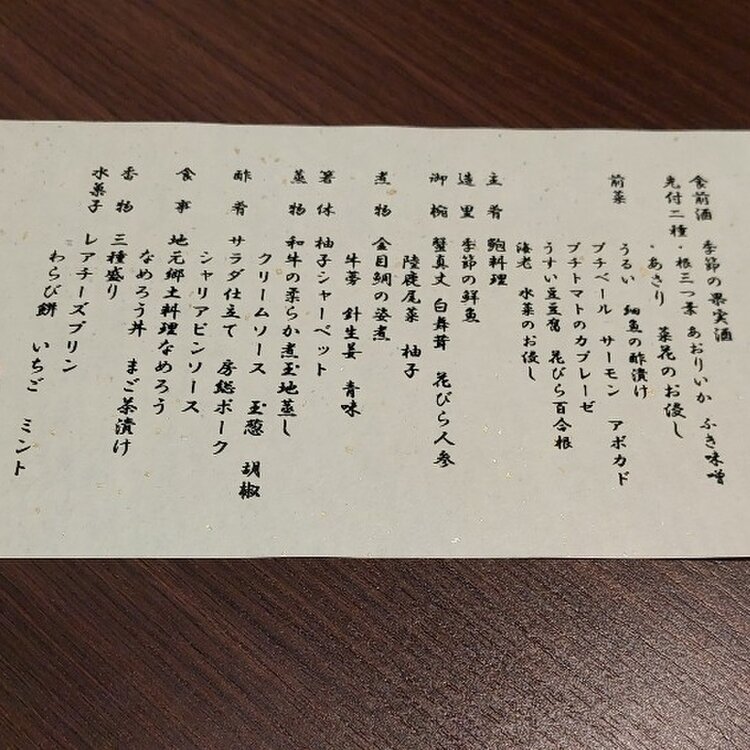 食前酒 季節の果実酒
先付二種・根三つ葉 あおりいか ふき味噌
・あさり 菜花のお浸し
前菜 うるい 細魚の酢漬け
プチベール サーモン アボカド
プチトマトのカプレーゼ
うすい豆豆腐 花びら百合根
海老 水菜のお浸し
主肴 鮑料理
造里 季節の鮮魚
御椀 蟹真丈 白舞茸 花びら人参
陸鹿尾菜 柚子
煮物 金目鯛の姿煮
牛蒡 針生姜 青味
箸休 柚子シャーベット
蒸物 和牛の柔らか煮玉地蒸し
クリームソース 玉葱 胡椒
酢肴 サラダ仕立て 房総ポーク
シャリアピンソース
食事 地元郷土料理なめろう
なめろう丼 まご茶漬け
香物 三種盛り
水菓子 レアチーズプリン
わらび餅 いちご ミント